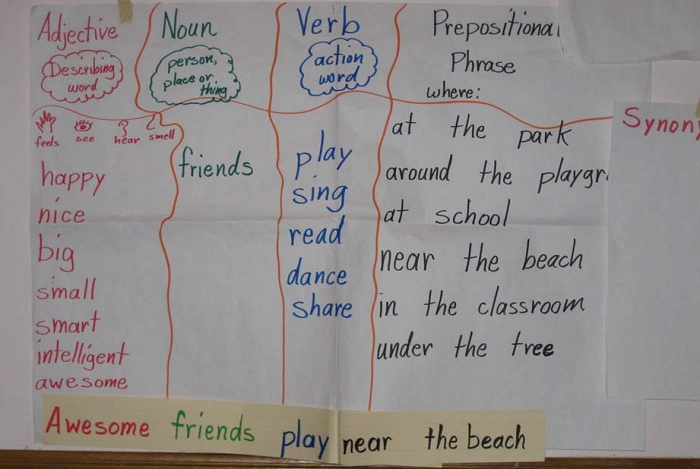 Adjective
Describing
word
feels see hear smell
happy
nice
big
small
smart
intelligent
awesome
Noun
person,
place or
thing
friends
Verb
action
word
play
sing
read
dance
share
Prepositional
Phrase
where:
at the park
around the playgr
at school
near the beach
in the classroom
under the tree
Synony
Awesome friends play near the beach